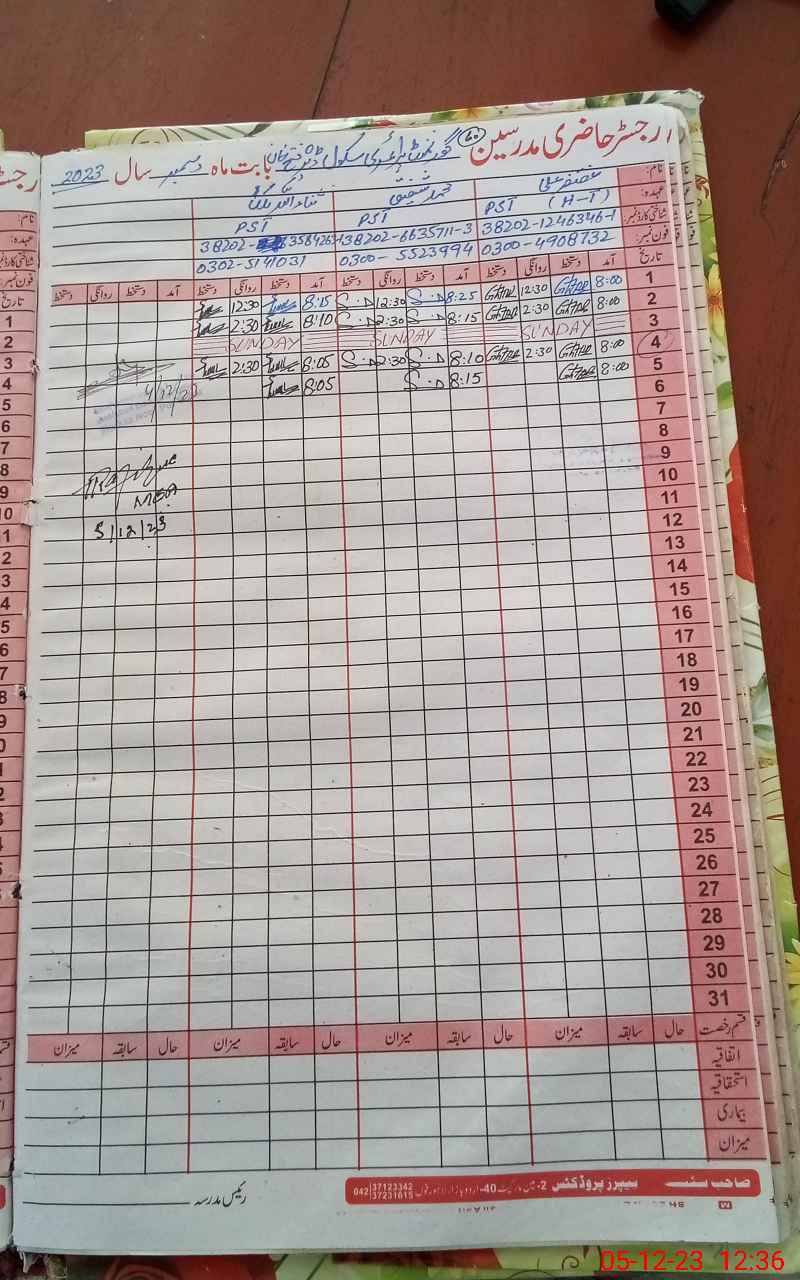 رجسٹر حاضری مدرسین گورنمنٹ پرائمری سکول بابت ماہ دسمبر سال 2023
نام:
غضنفر علی
محمد شفیق
عہدہ:
PST (H-T)
PST
PST
شناختی کارڈ نمبر:
38202-1246346-1
38202-6635711-3
38202-
فون نمبر:
0300-4908732
0300-5523994
0302-5141031
تاریخ آمد دستخط روانگی دستخط آمد دستخط روانگی دستخط آمد دستخط روانگی دستخط آمد دستخط روانگی دستخط
1 8:00 12:30 8:25 12:30 8:15 12:30
2 8:00 2:30 8:15 2:30 8:10 2:30
3 SUNDAY SUNDAY SUNDAY
4 8:00 2:30 8:10 2:30 8:05 2:30
5 8:00 8:15 8:05
4/12/23
6
7
8
9
MEA
10
11
5/12/23
12
13
14
15
16
17
18
19
20
21
22
23
24
25
26
27
28
29
30
31
قسم رخصت حال سابقہ میزان حال سابقہ میزان حال سابقہ میزان حال سابقہ میزان
اتفاقیہ
استحقاقیہ
بیماری
میزان
صاحب سنز پیپرز پروڈکٹس 2- میں مارکیٹ 40-اردو بازار لاہور فون 042 37123342 37231615
رئیس مدرسہ
05-12-23 12:36